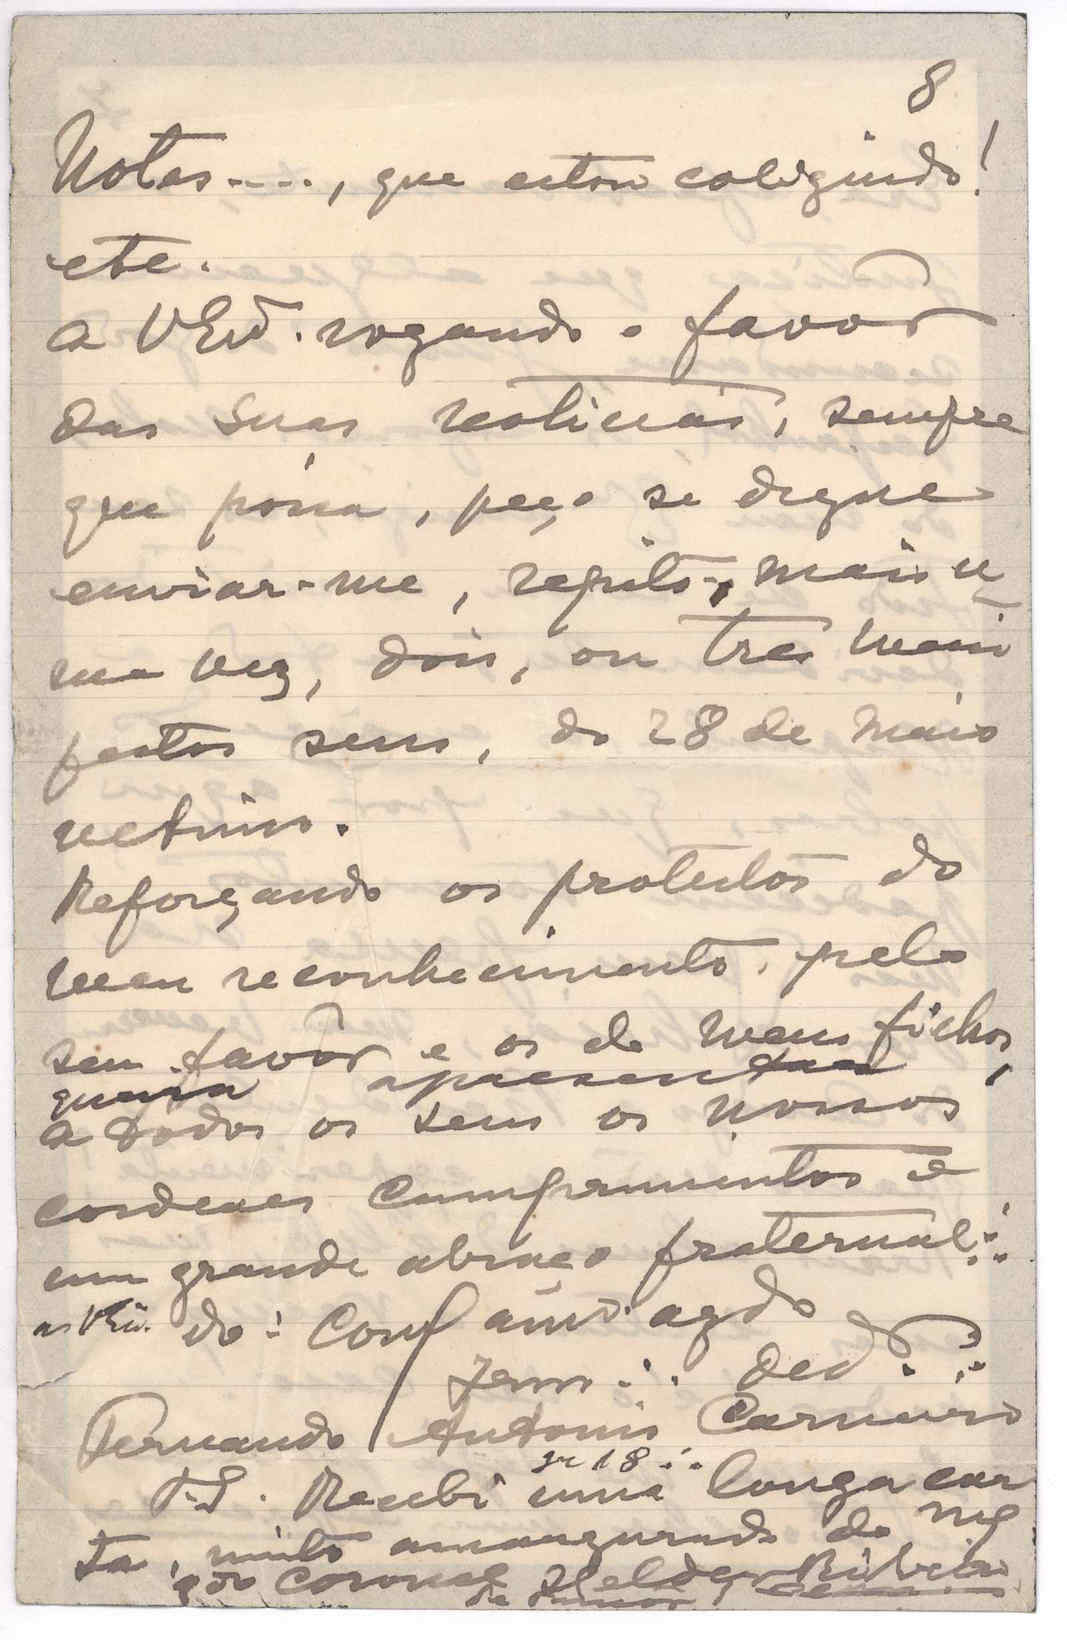 8
Notas...., que estou coligindo!
etc.
A V Ex.ª rogando o favor
das suas noticias, sempre
que possa, peço se digne
enviar-me, repito, mais u
ma vez, dois, ou tres mani
festos seus, do 28 de Maio
ultimo.
Reforçando os protestos do
meu reconhecimento, pelo
seu favôr e os de meus filhos,
queira apresentar
a todos os seus os nossos
cordeaes cumprimentos e
um grande abraço fraternal∴
a V Ex.ª do: am.º agdo
ded.
Fernando Antonio Carneiro
gr 18 ∴
P.S. Recebi uma longa car
ta, muito amargurada do
Coronel Helder Ribeiro